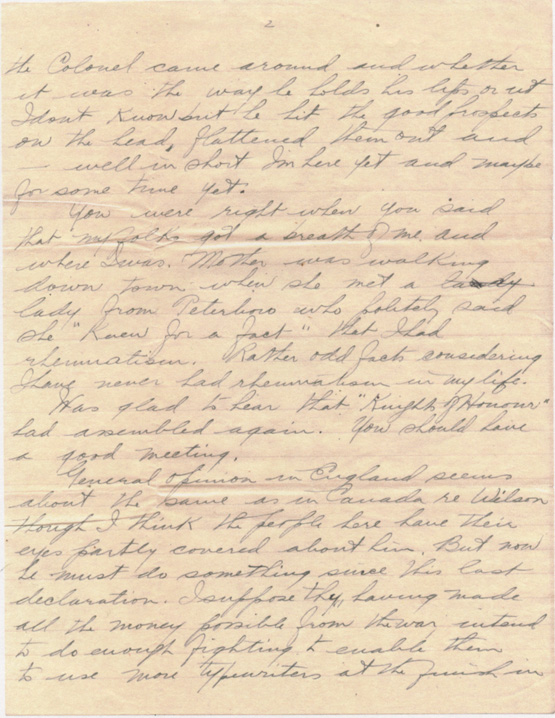 2
the Colonel came around and whether
it was the way he holds his lips or not
I dont know but he hit the good prospects
on the head, flattened them out and
— well in short Im here yet and maybe
for some time yet.
You were right when you said
that my folks got a breath of me and
where I was. Mother was walking
down town when she met a
lady from Peterboro who politely said
she "Knew for a fact" that I had
rheumatism. Rather odd facts considering
I have never had rheumatism in my life.
Was glad to hear that "Knights of Honour"
had assembled again. You should have
a good meeting.
General opinion in England seems
about the same as in Canada re Wilson
though I think the people here have their
eyes partly covered about him. But now
he must do something since this last
declaration. I suppose they, having made
all the money possible from the war intend
to do enough fighting to enable them
to use more typewriters at the finish in